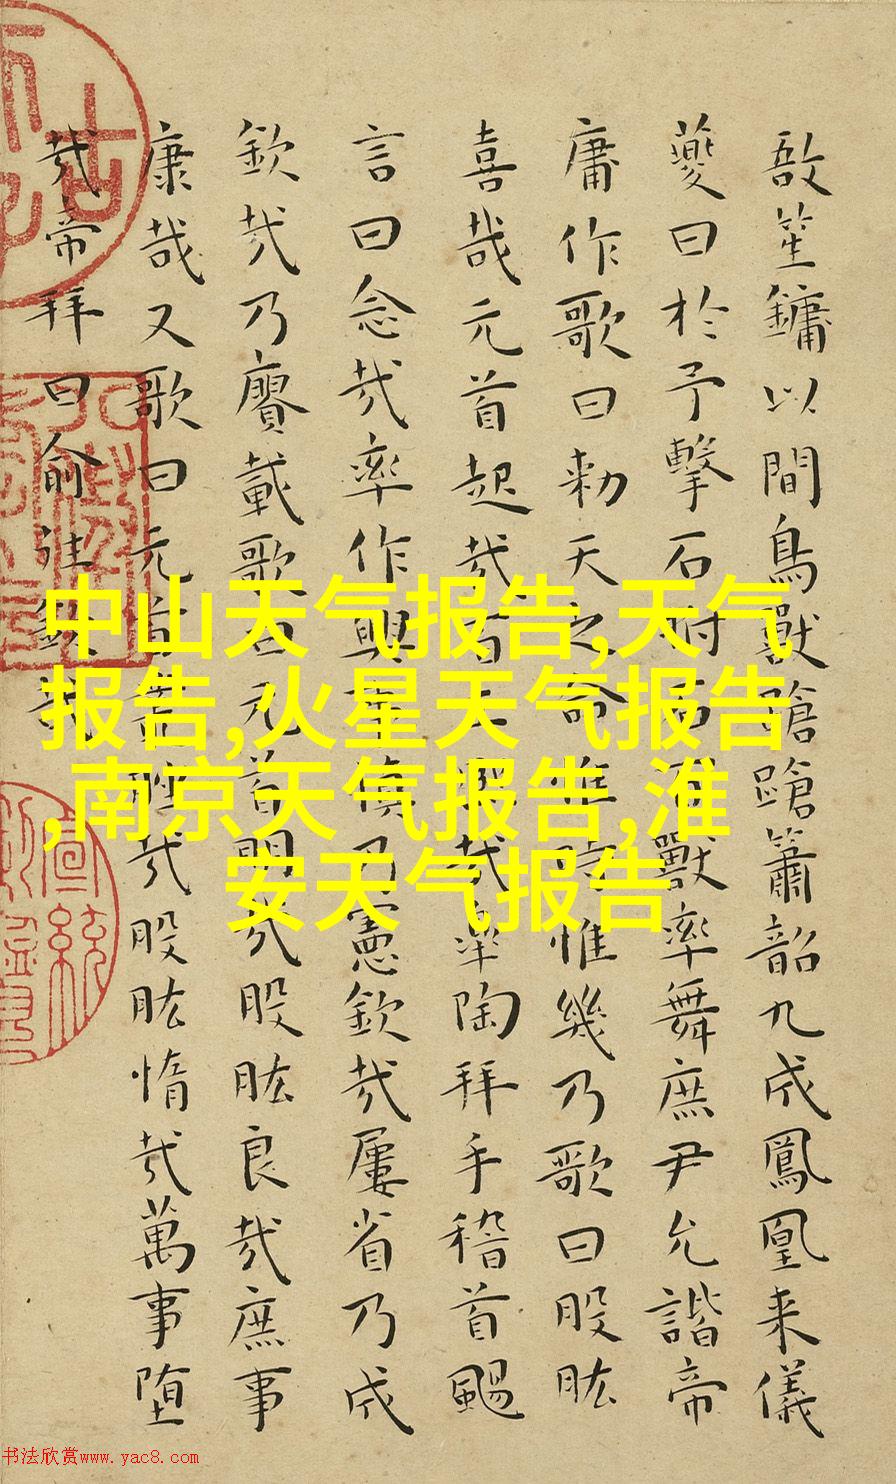 敔笙鏞以間鳥獸蹌蹌簫韶九成鳳凰来儀
夔曰於予擊石拊石百獸率舞庶尹允諧帝
庸作歌曰勑天之命惟時惟幾乃歌曰股肱
喜哉元首起哉百工熙哉皋陶拜手稽首颺
言曰念哉率作興事慎乃憲欽哉屢省乃成
欽哉乃賡載歌曰元首明哉股肱良哉庶事
康哉又歌曰元首叢脞哉股肱惰哉萬事堕
哉帝拜曰俞往欽哉
中山天气报告,天气
报告,火星天气报告
,南京天气报告,淮
安天气报告
宣統
书法欣赏www.yac8.com